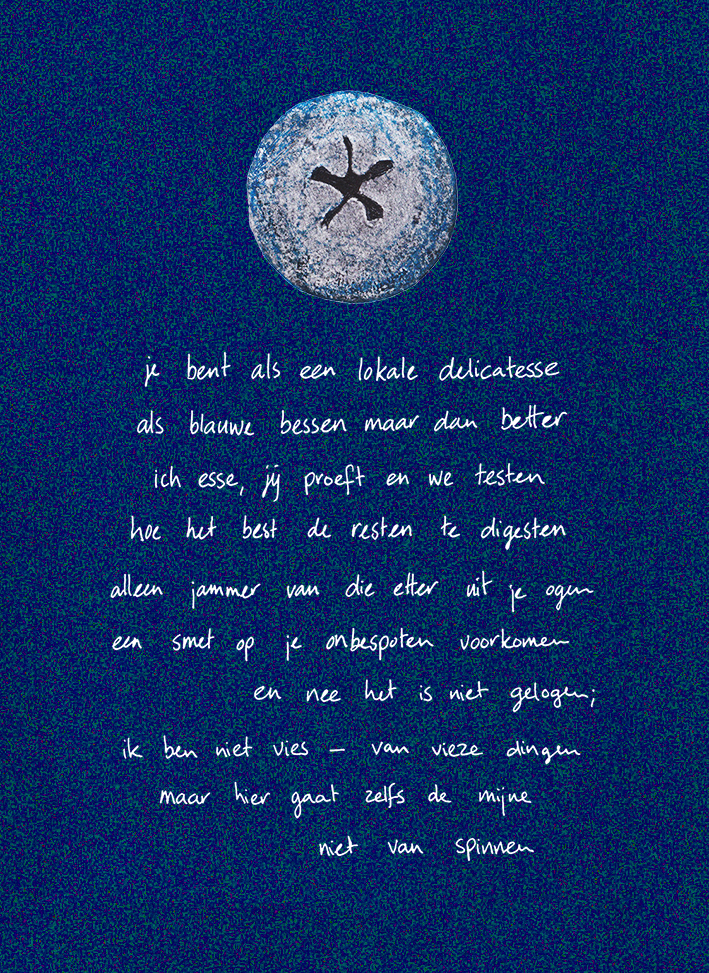 je bent als een lokale delicatesse
als blauwe bessen maar dan better
ich esse, jij proeft en we testen
hoe het best de resten te digesten
alleen jammer van die etter uit je ogen
een smet op je onbespoten voorkomen
en nee het is niet gelogen;
ik ben niet vies – van vieze dingen
maar hier gaat zelfs de mijne
niet van spinnen